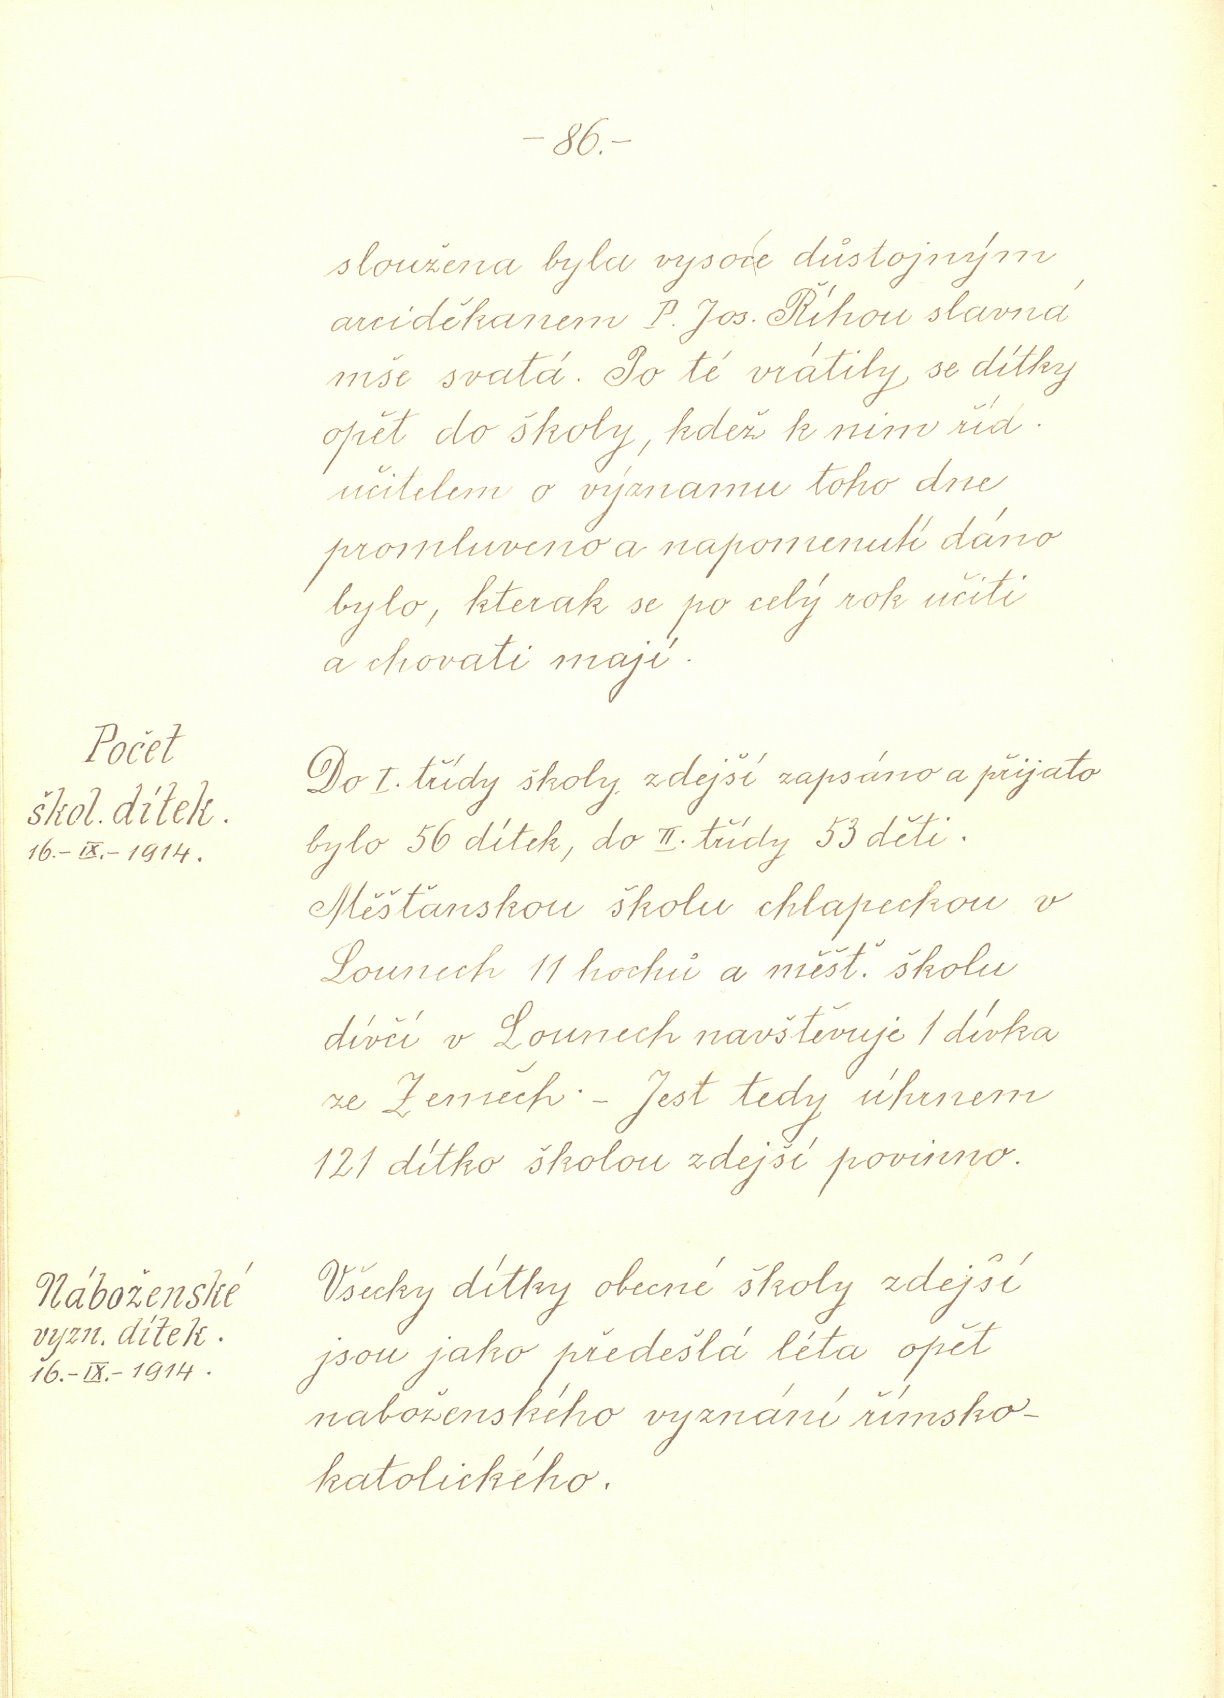 - 86. -
sloužena byla vysoce důstojným
arciděkanem P. Jos. Říhou slavná
mše svatá. Po té vrátily se dítky
opět do školy, kdež k nim říd.
učitelem o významu toho dne
promluveno a napomenutí dáno
bylo, kterak se po celý rok učiti
a chovati mají.
Počet
škol. dítek.
16.- IX.- 1914.
Do I. třídy školy zdejší zapsáno a přijato
bylo 56 dítek, do II. třídy 53 děti.
Měšťanskou školu chlapeckou v
Lounech 11 hochů a měšť. školu
dívčí v Lounech navštěvuje 1 dívka
ze Zeměch. - Jest tedy úhrnem
121 dítko školou zdejší povinno.
Náboženské
vyzn. dítek.
16.- IX.- 1914.
Všecky dítky obecné školy zdejší
jsou jako předešlá léta opět
naboženského vyznání římsko-
katolického.